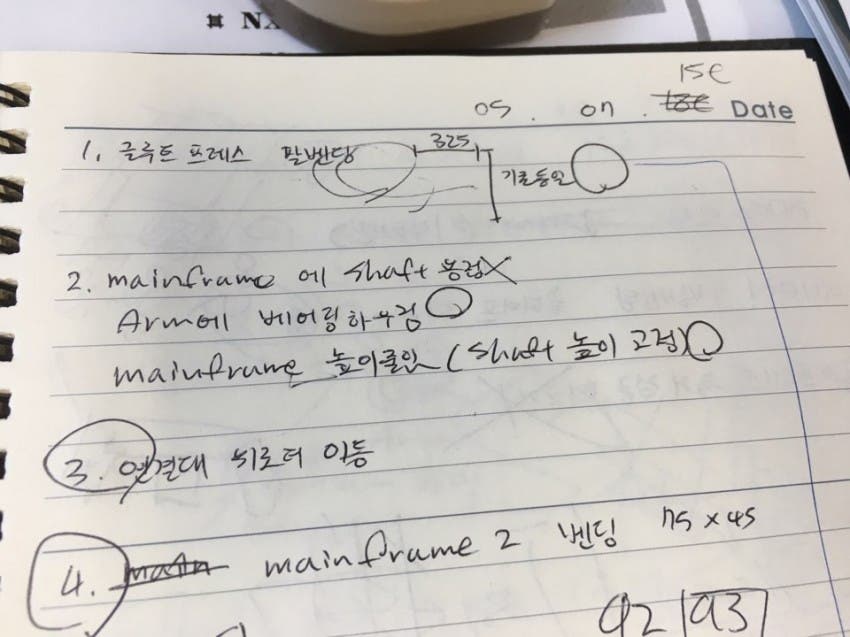 NX
15t
05. 07. Date
1. 글루트 프레스 팔벤딩 325
기로등일
2. mainframe 에 shaft 용접X
Arm에 베어링하우징
mainframe 높이줄임 (shaft 높이 고정)
3. 연결대 뒤로 더 이동
4. main mainframe 2 벤딩 75 x 45
92 193